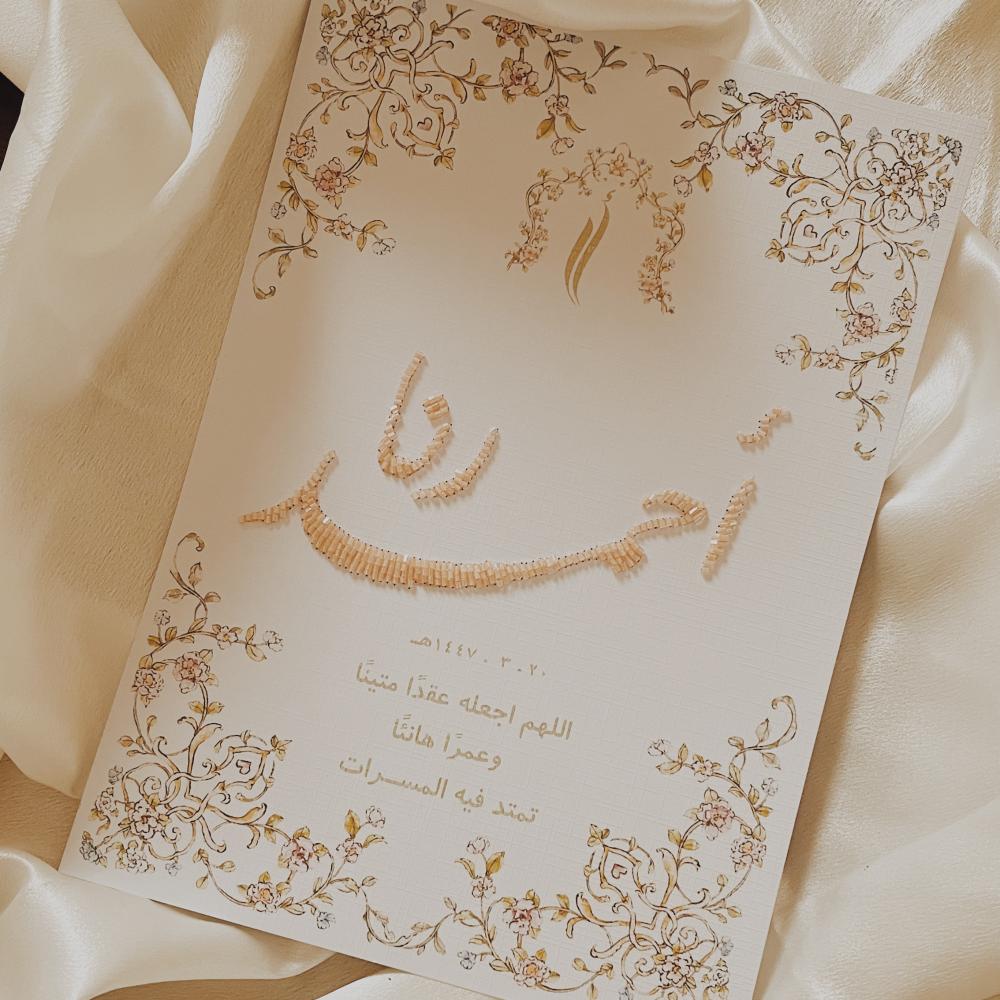 أحمد رنا
٢٠ . ٣ . ١٤٤٧هـ
اللهم اجعله عقدًا متينًا
وعمرًا هانئًا
تمتد فيه المســرات